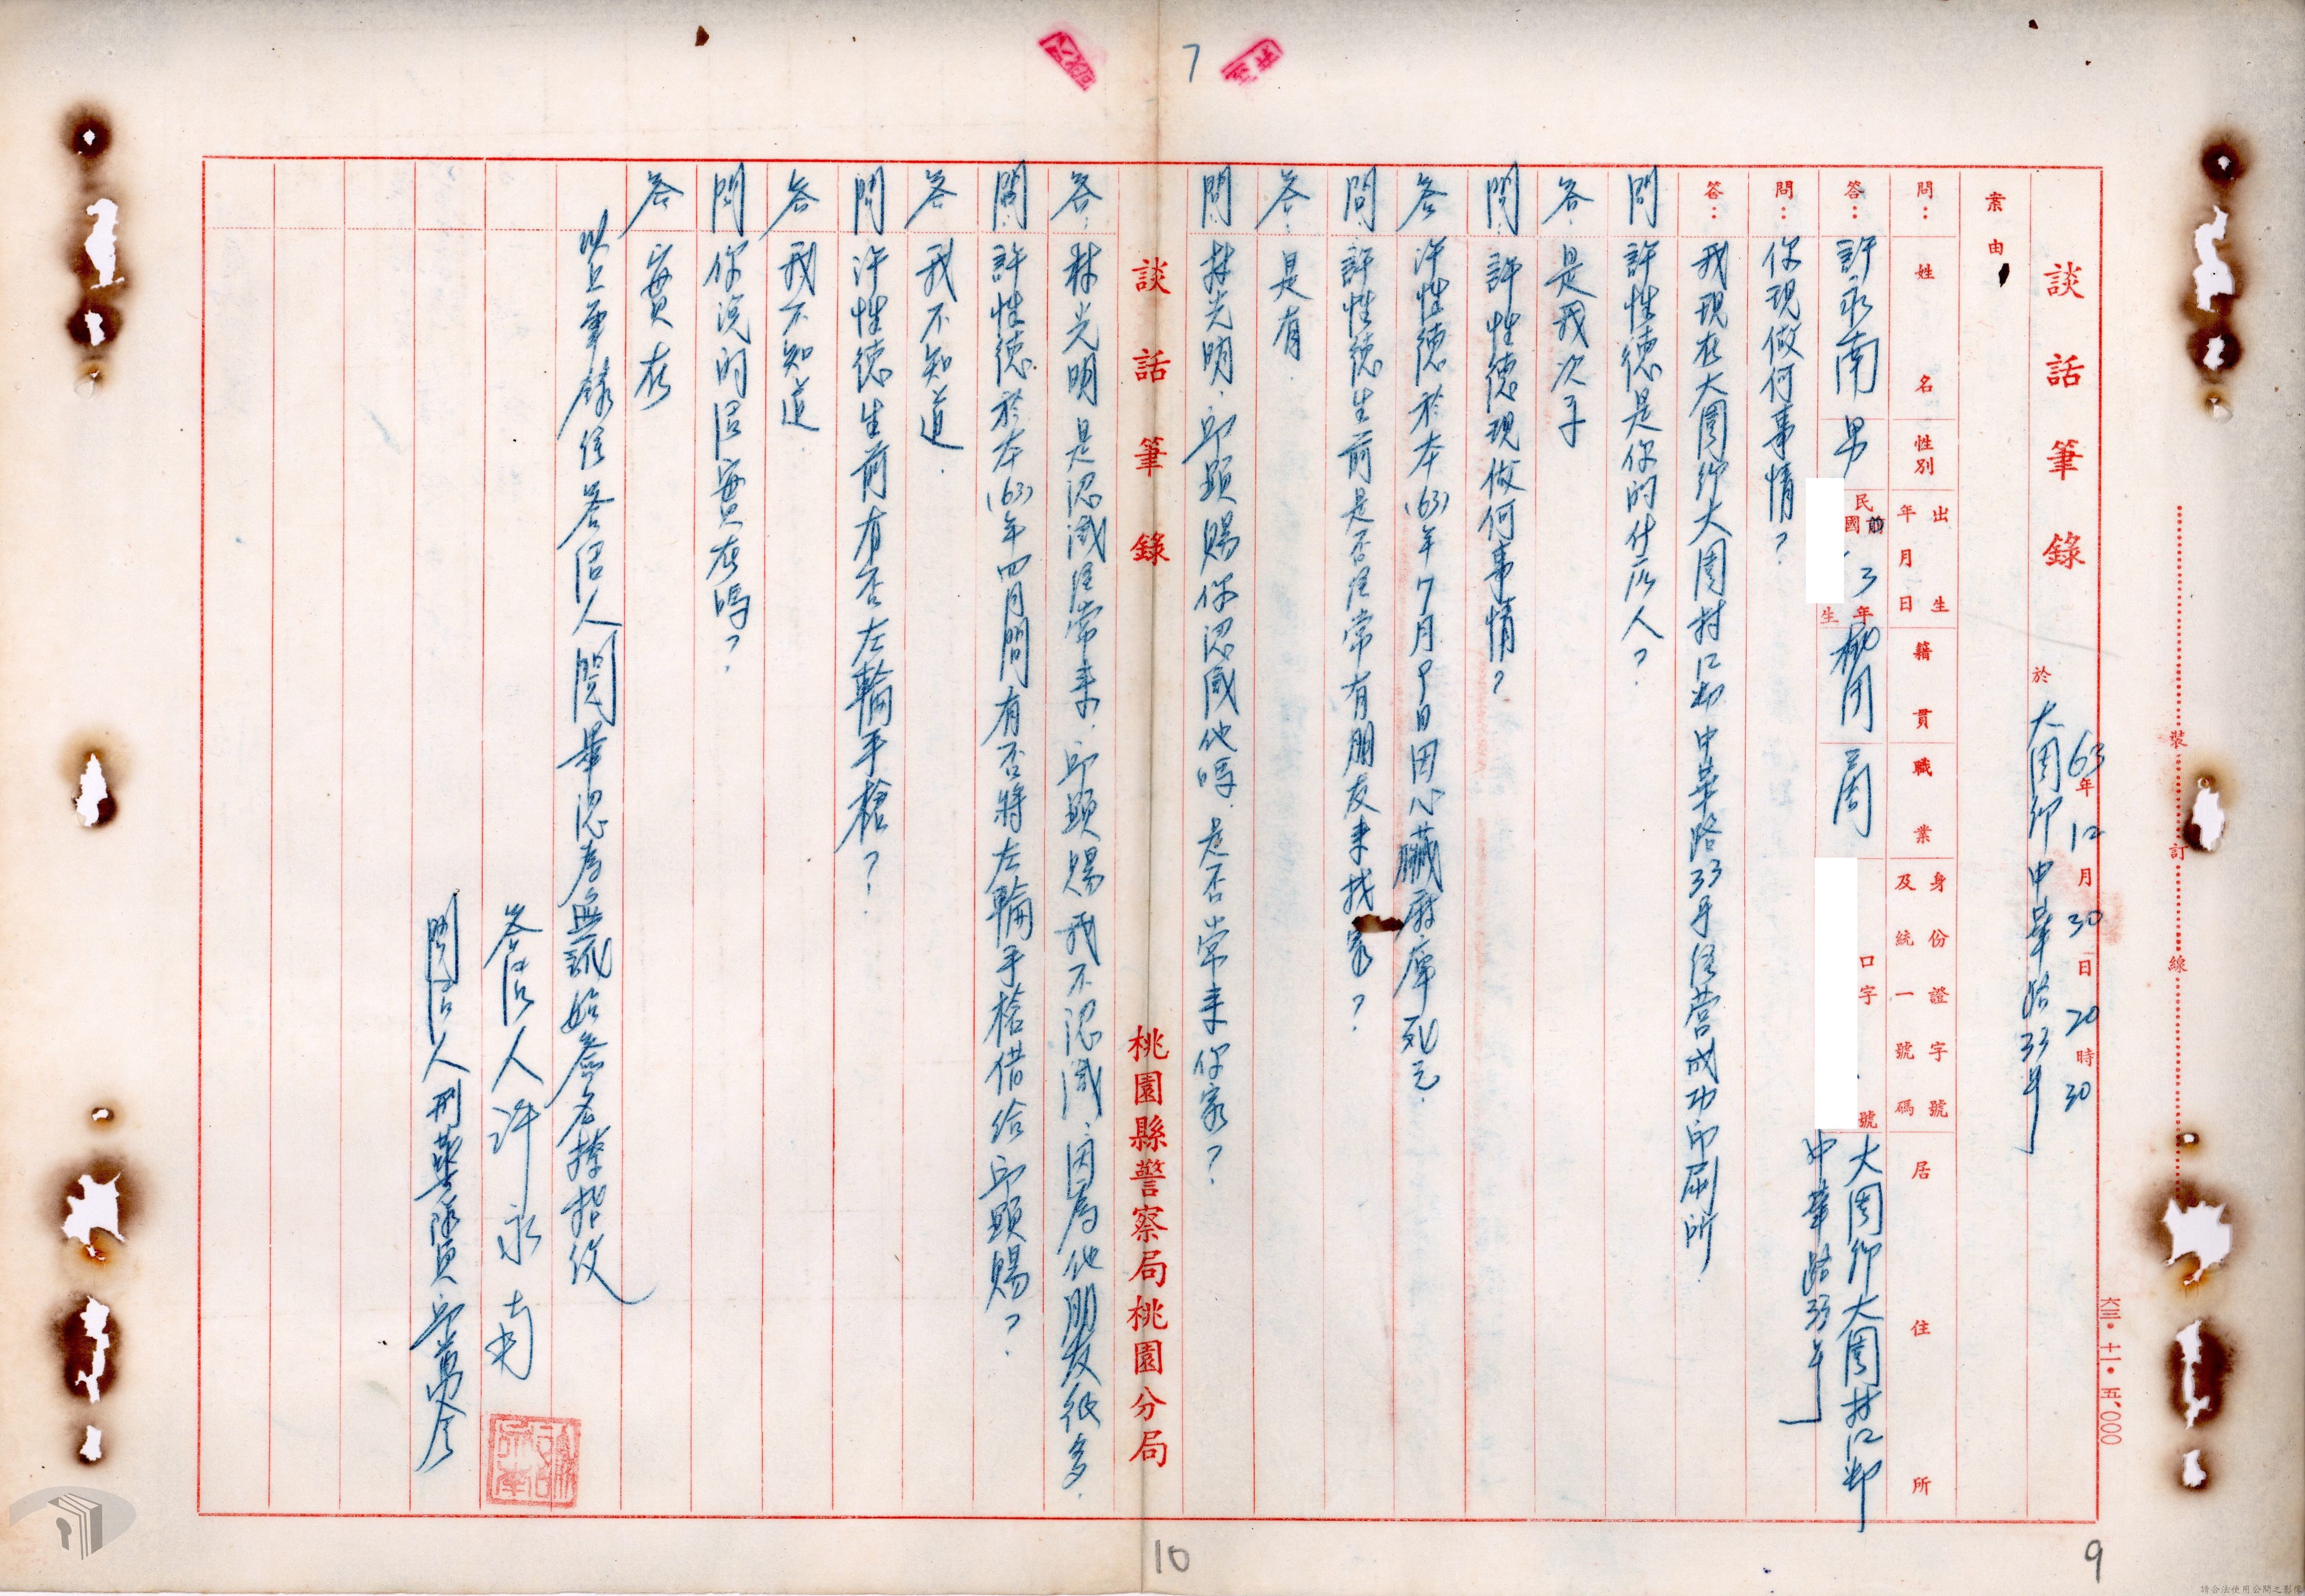 談話筆錄 於 63年12月30日20時30
大園鄉中華路33号
案由
問: 姓名 性別 出生年月日 籍貫 職業 身份證字號及統一號碼 居住所
答: 許永南 男 民國前 3年 生 桃園 商 口字 號 大園鄉大園村12鄰中華路33号
問: 你現做何事情?
答: 我現在大園鄉大園村12鄰中華路33号經營成功印刷所.
問 許性德是你的什広人?
答. 是我次子
問. 許性德現做何事情?
答 许性德於本(63)年7月9日因心臟麻痺死亡.
問. 許性德生前是否經常有朋友来找 家?
答. 是有.
問. 林光明. 邱顕賜你認識他嗎. 是否常来你家?
談話筆錄 桃園縣警察局桃園分局
答. 林光明是認識經常来. 邱顕賜我不認識. 因為他朋友很多.
問. 許性德於本(63)年四月間有否將左輪手槍借給邱顕賜?
答 我不知道.
問 许性德生前有否左輪手槍?
答 我不知道.
問 你説的信實在嗎?
答 實在
以上筆錄經答話人閱畢認為無訛始簽名捺指紋
答話人 许永南
問話人 刑警隊員 邱
裝 訂 線
六三・十一・五.000
7
10
9
請合法使用公開之影像